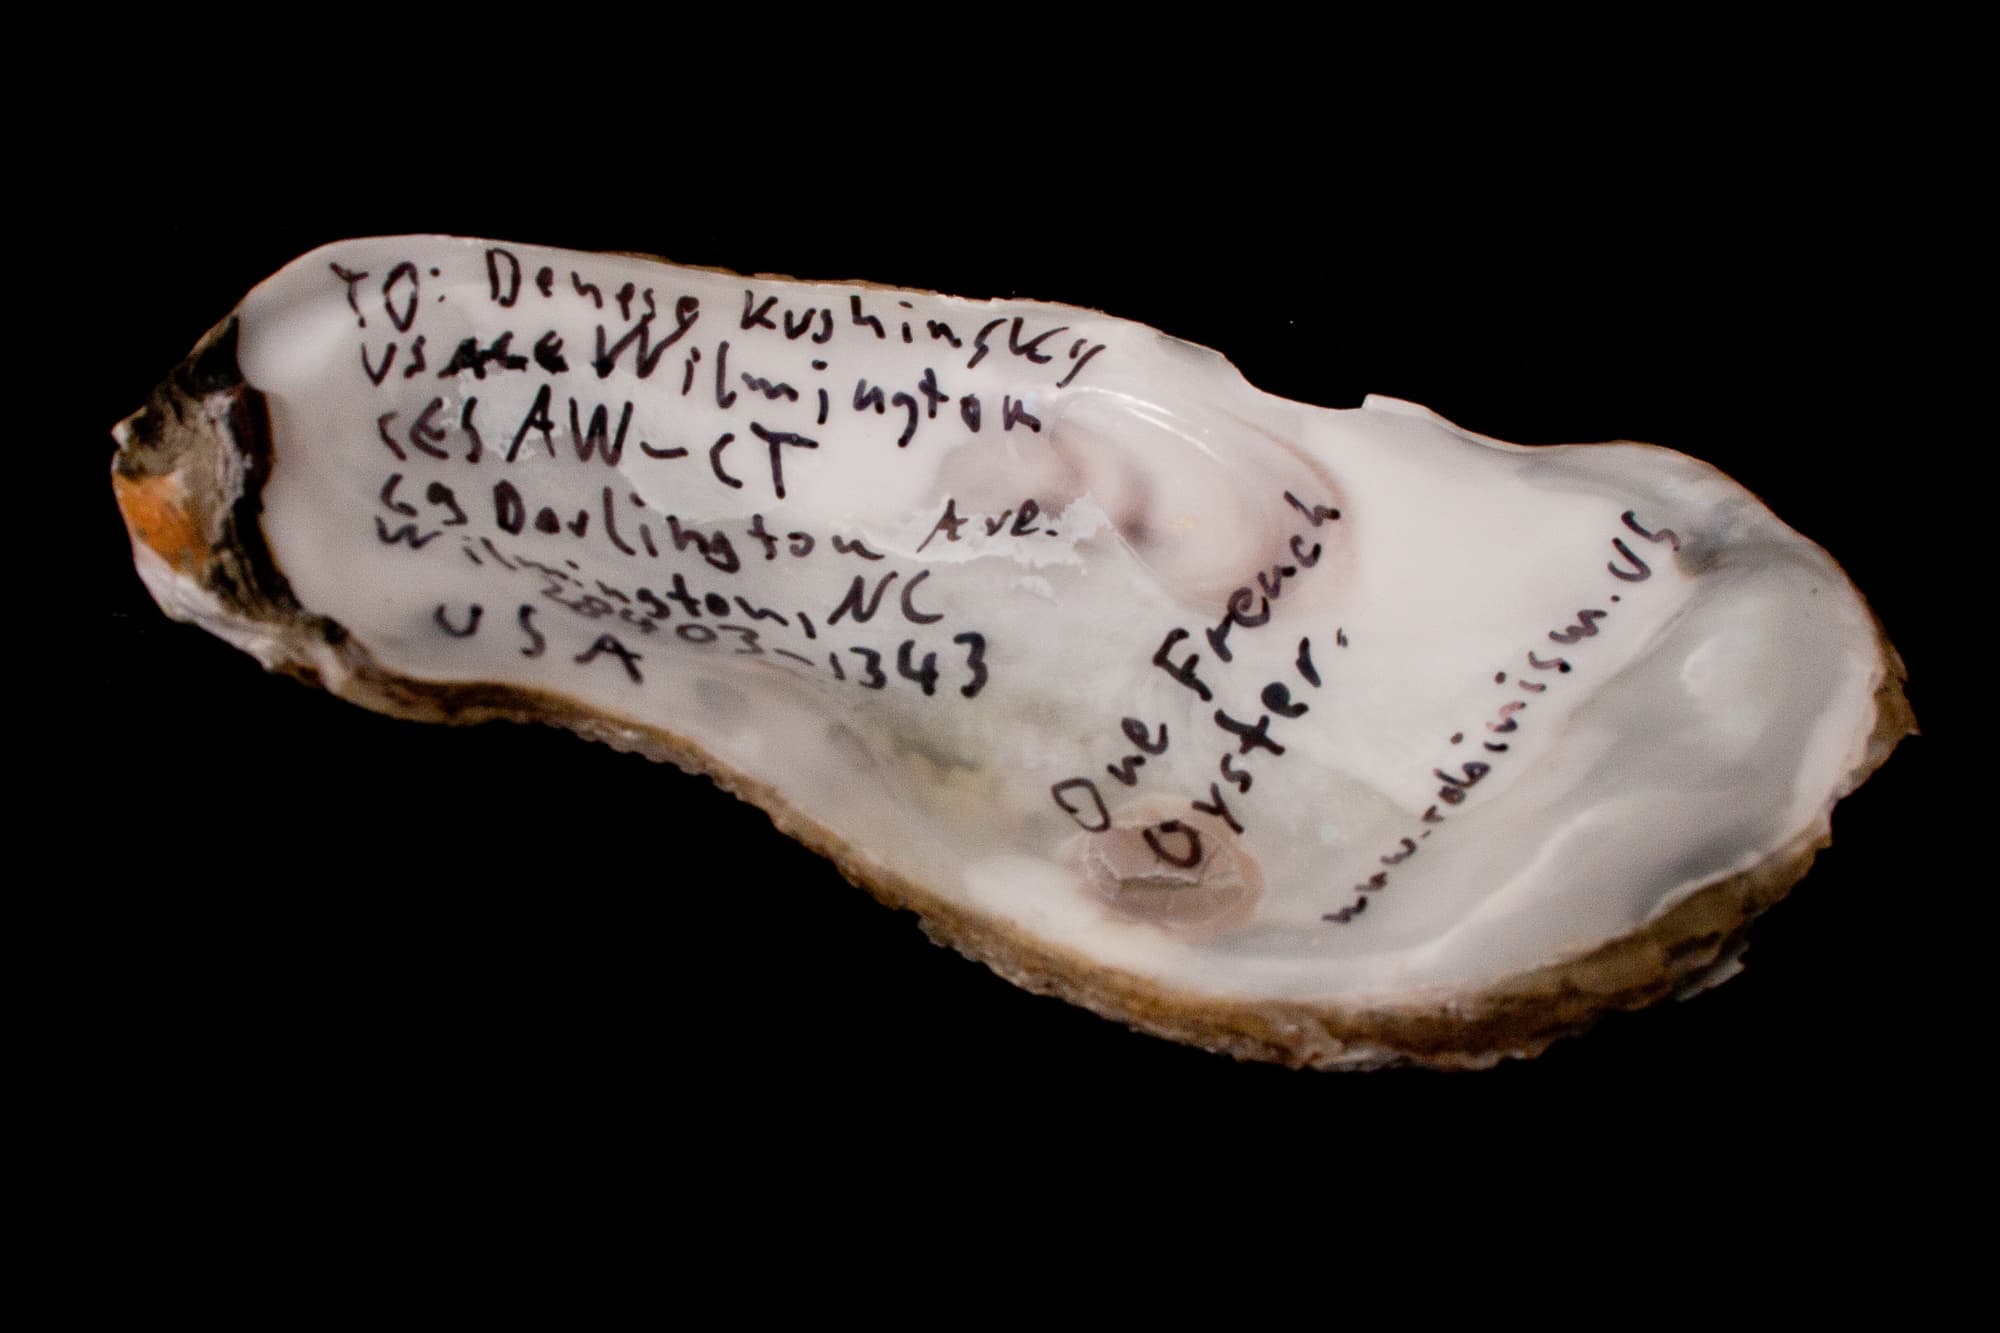 TO: Denese Kushinsky
USACE Wilmington
CESAW-CT
69 Darlington Ave.
Wilmington, NC
28403-1343
USA
One French
Oyster.
www.rdoinism.us